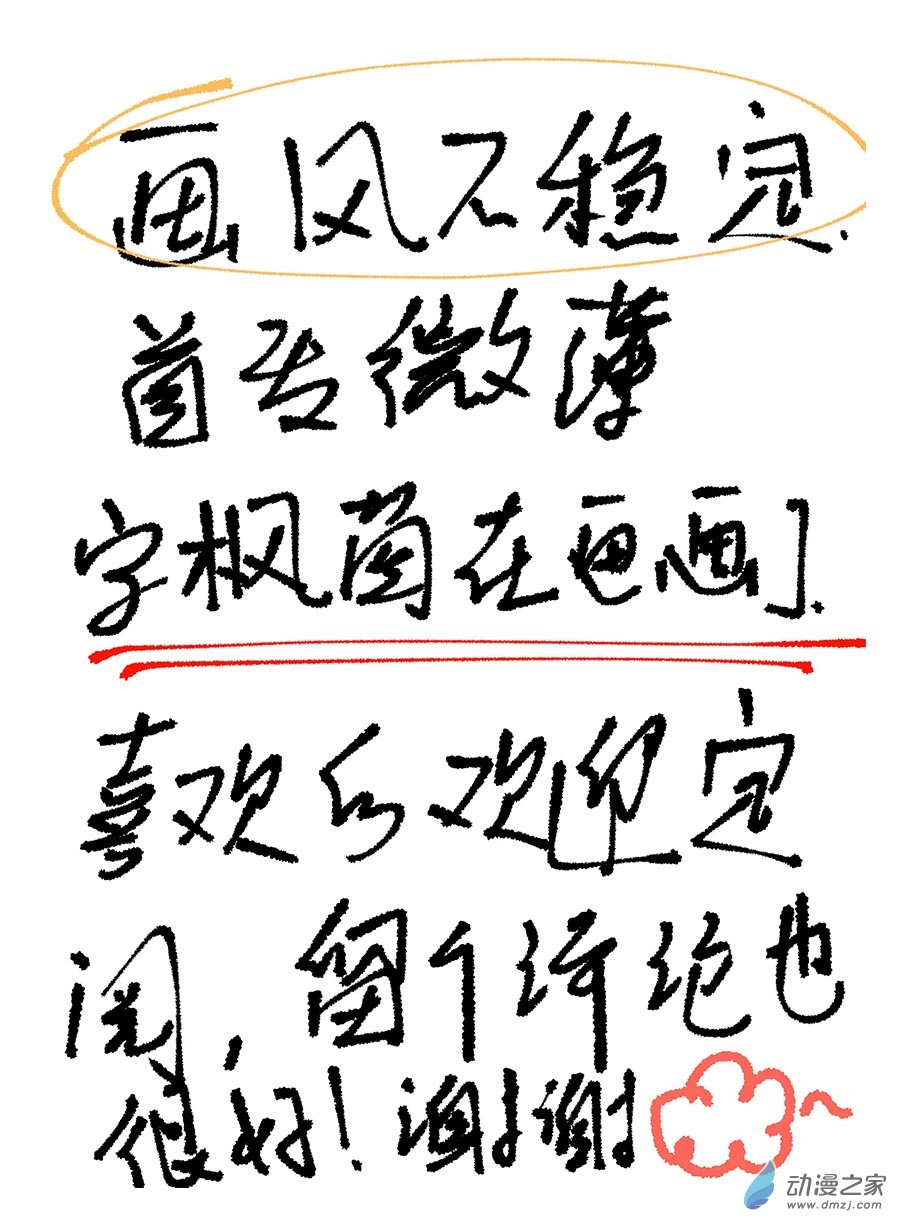 画风不稳定.
微薄
字枫菌在画画].
喜欢的欢迎定
阅，留个评论也
很好！谢谢
动漫之家
www.dmzj.com